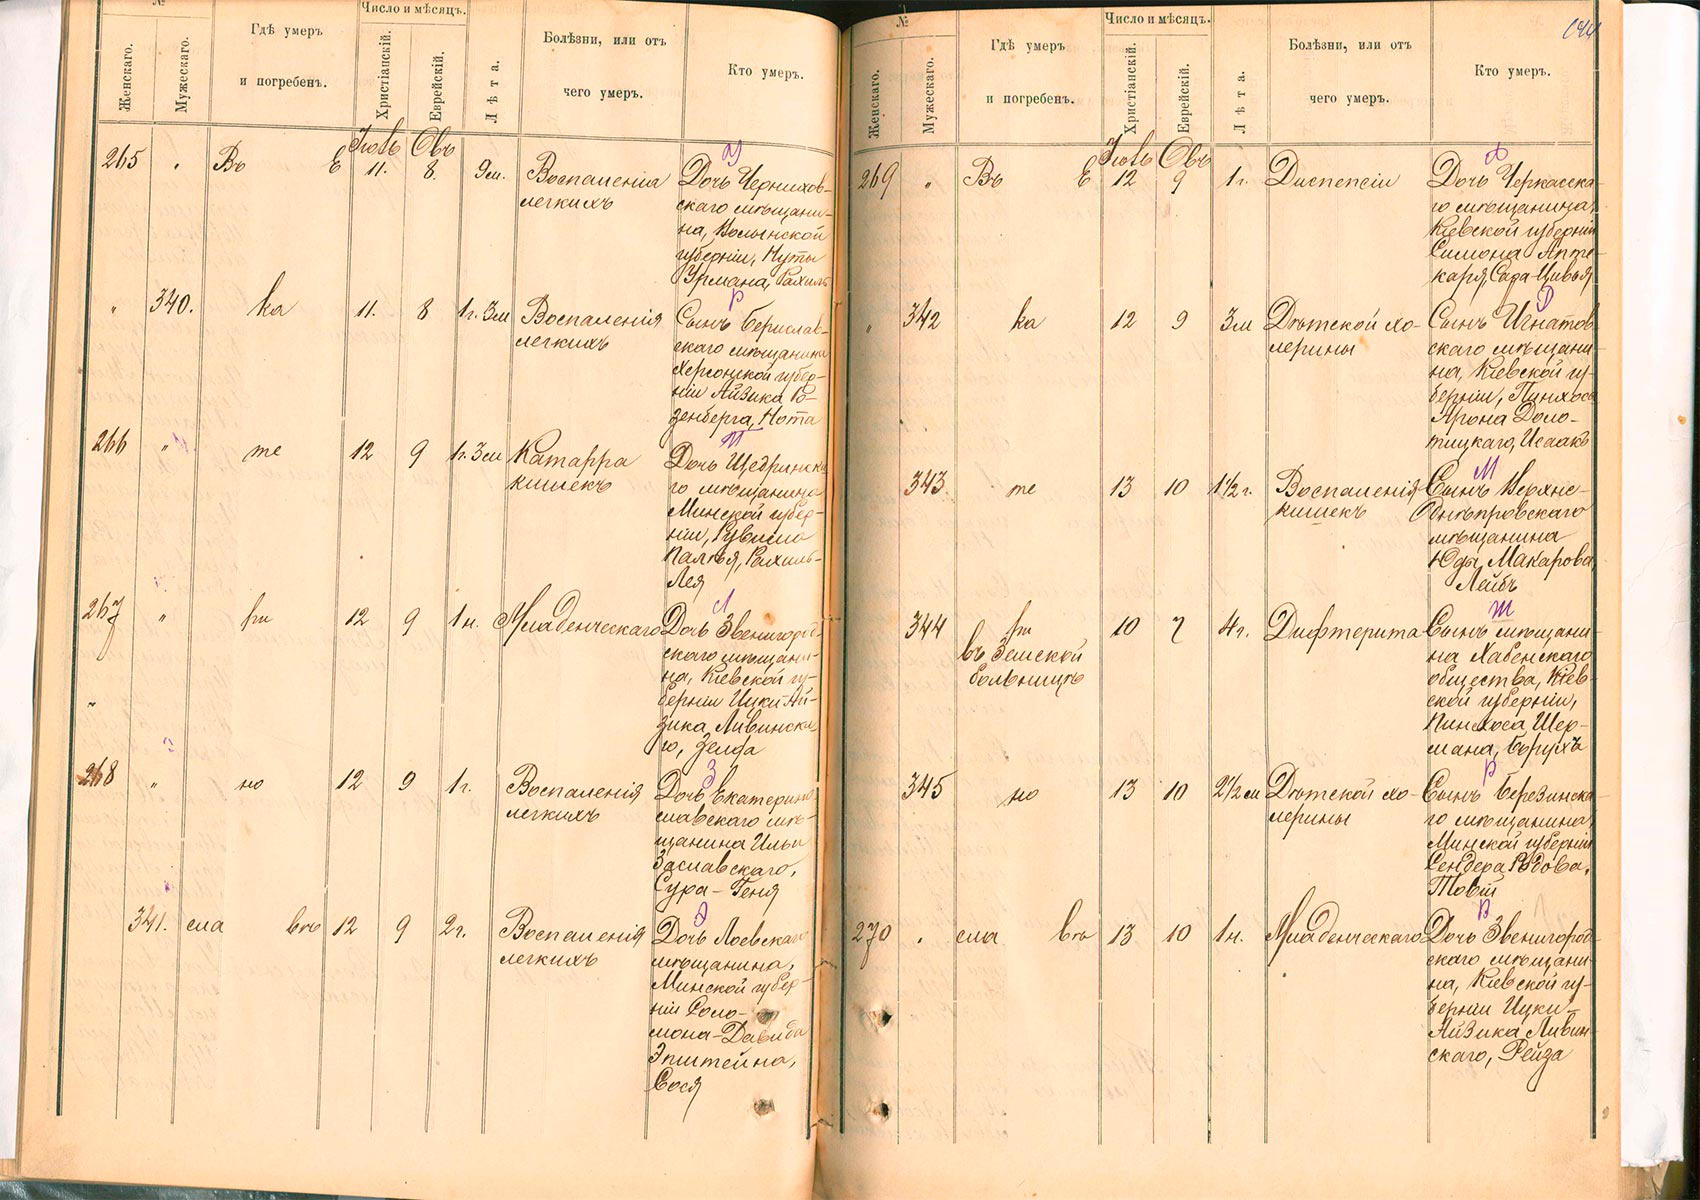 №
Гдѣ умеръ
и погребенъ.
Число и мѣсяцъ.
Болѣзни, или отъ
чего умеръ.
Кто умеръ.
Женскаго.
Мужескаго.
Христіанскій.
Еврейскій.
Лѣта.
265 " Въ Е 11. 8. 9 м. Воспаленія
легкихъ
У
Дочь Чернихов-
скаго мѣщани-
на, Волынской
губерніи, Нуты
Урмана, Рахиль
" 340. ка 11. 8 1 г. 3 м Воспаленія
легкихъ
Р
Сынъ Берислав-
скаго мѣщанина
Херсонской губер-
ніи Айзика Ро-
зенберга, Нота
266 " те 12 9 1 г. 3 м Катарра
кишекъ
П
Дочь Щедринска
го мѣщанина
Минской губер-
ніи, Рувима
Рахиль-
Лея
267 " ри 12 9 1 н. Младенческаго
Л
Дочь Звенигород
скаго мѣщани-
на, Кіевской гу-
берніи Ицки-Ай-
зика Ливинска
го, Зелда
"
268 " но 12 9 1 г. Воспаленія
легкихъ
З
Дочь Екатерино
славскаго мѣ-
щанина Ильи
Заславскаго,
Сура-Геня
341. сла вѣ 12 9 2 г. Воспаленія
легкихъ
Э
Дочь Лоевскаго
мѣщанина,
Минской губер-
ніи Соло-
мона-Давида
Эпштейна,
Сося
№
Гдѣ умеръ
и погребенъ.
Число и мѣсяцъ.
Болѣзни, или отъ
чего умеръ.
Кто умеръ.
Женскаго.
Мужескаго.
Христіанскій.
Еврейскій.
Лѣта.
269 " Въ Е 12 9 1 г. Диспепсіи
Дочь Черкасска-
го мѣщанина,
Кіевской губерніи
Симона Апте-
каря, Сара-Цивья
" 342 ка 12 9 3 м Дѣтской хо-
лерины
Д
Сынъ Игнатов
скаго мѣщани-
на, Кіевской гу-
берніи, Пинхоса
Арона Доло-
тицкаго, Исаакъ
343 те 13 10 1 1/2 г. Воспаленія
кишекъ
М
Сынъ Верхне-
Днѣпровскаго
мѣщанина
Юды, Макарова
Лейбъ
344 ри
въ Земской
больницѣ
10 7 4 г. Дифтерита
Ш
Сынъ мѣщани-
на Хабенскаго
общества, Кіев-
ской губерніи,
Пинхоса Шер-
мана, Борухъ
345 но 13 10 2 1/2 м Дѣтской хо-
лерины
Р
Сынъ Березинска-
го мѣщанина,
Минской губерніи
Сендера Родова,
Товій
270 " сла вѣ 13 10 1 н. Младенческаго
Дочь Звенигород-
скаго мѣщани-
на, Кіевской гу-
берніи Ицки-
Айзика Ливин-
скаго, Рейза